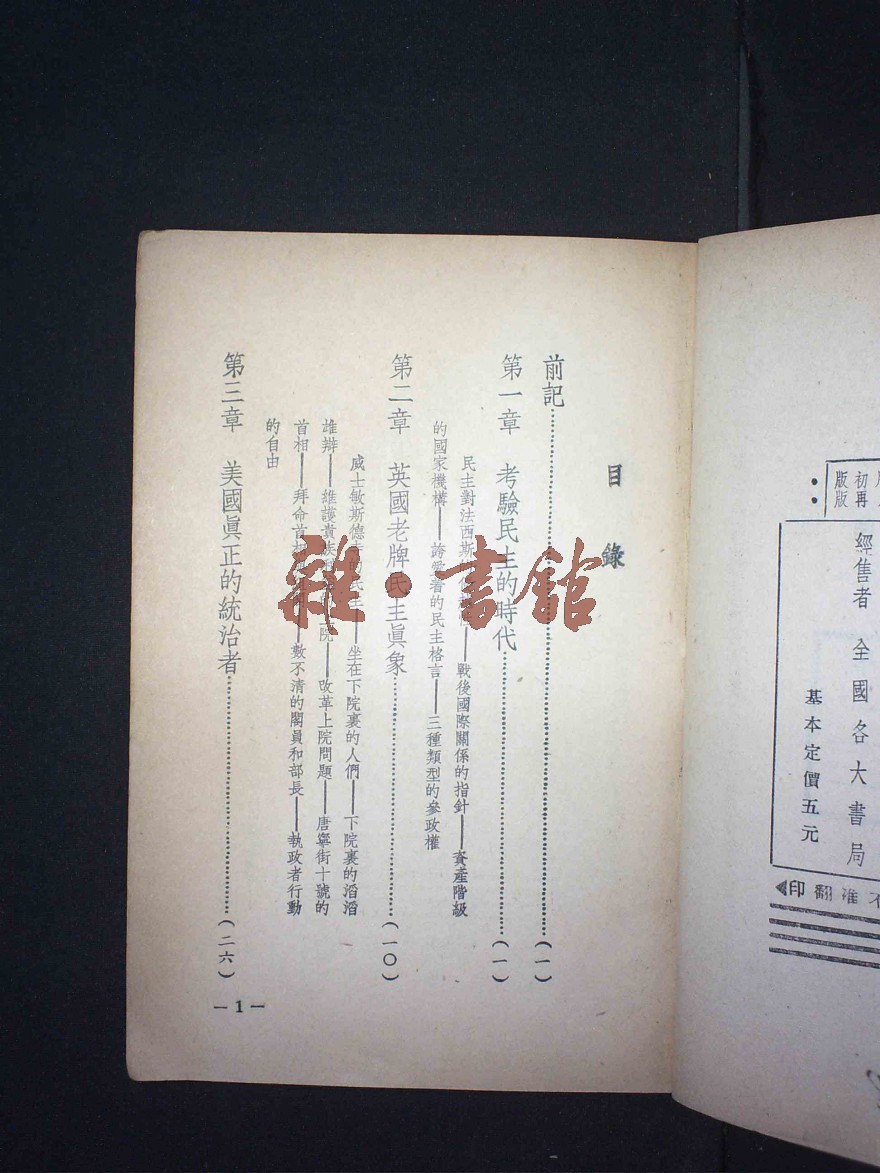 初
再
版
版
經售者 全國各大書局
基本定價五元
翻印
目錄
前記……(一)
第一章 考驗民主的時代……(一)
民主對法西斯——戰後國際關係的指針——資產階級
的國家機構——誇愛著的民主格言——三種類型的參政權
第二章 英國老牌民主眞象……(一〇)
威士敏斯德寺的民主——坐在下院裏的人們——下院裏的滔滔
雄辯——維護貴族院——改革上院問題——唐寧街十號的
首相——拜命首相——數不清的閣員和部長——執政者行動
的自由
第三章 美國眞正的統治者……(二六)
— 1 —
雜·書館